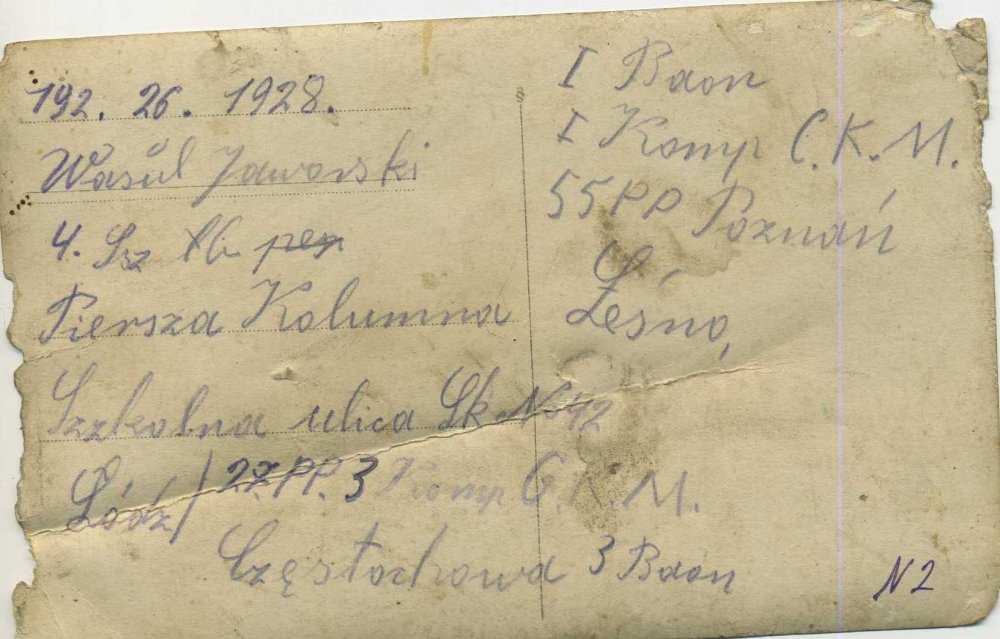 192. 26. 1928.
Wasůl Jaworski
4. Sz
Piersza Kolumna
Szzkolna ulica Sk N 42
Łódź / 27.PP. 3 Komp C.K.M.
Częstochowa 3 Baon
I Baon
I Komp C.K.M.
55 PP Poznań
Leśno,
N2